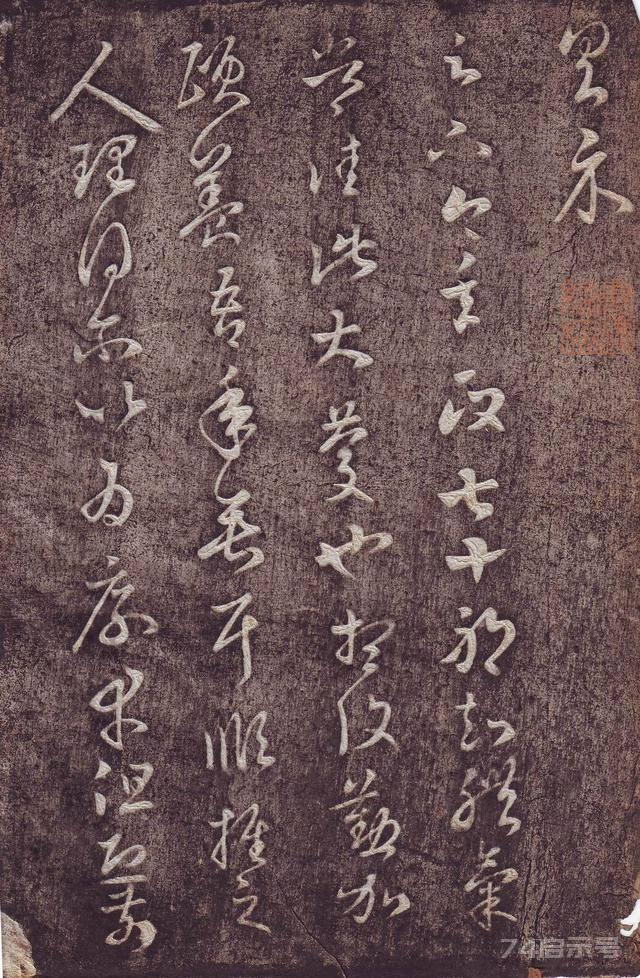 具示
足下今年政七十耶知體氣
常佳此大慶也想復懃加
頤養吾年垂耳順推之
人理得爾以為厚幸但恐前
74启示号